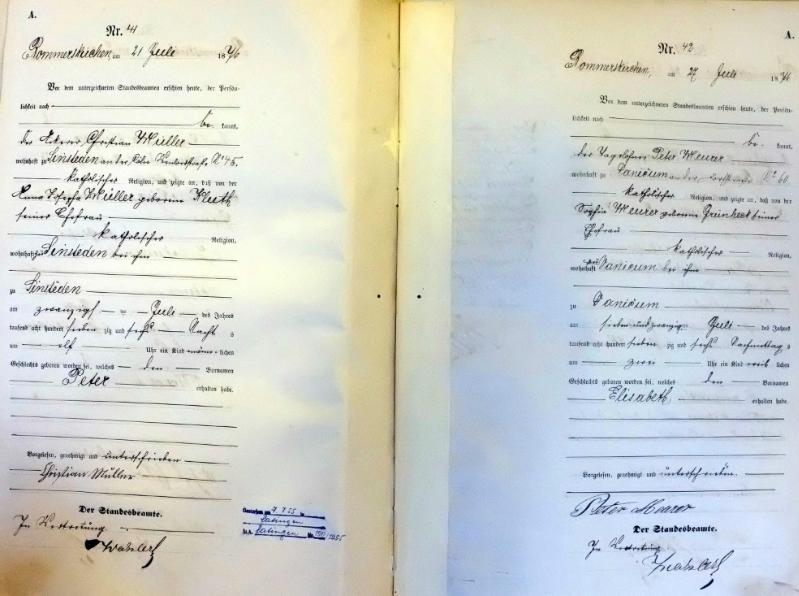 A.
Nr. 41
Rommerskirchen, am 21 Juli 1876
Vor dem unterzeichneten Standesbeamten erschien heute, der Persön-
lichkeit nach
be kannt,
der Ackerer Christian Müller
wohnhaft zu Sinsteden an der Köln N° 45.
katholischer Religion, und zeigte an, daß von der
Anna Josepha Müller geborenen Kluth
seiner Ehefrau
katholischer Religion,
wohnhaft zu Sinsteden bei ihm
zu Sinsteden
am zwanzigsten Juli des Jahres
tausend acht hundert sieben zig und sechs Nachts
um elf Uhr ein Kind männ lichen
Geschlechts geboren worden sei, welches den Vornamen
Peter erhalten habe.
Vorgelesen, genehmigt und unterschrieben
Christian Müller
Der Standesbeamte.
In Vertretung
Gestorben am 9.7.55 in
Ratingen
St.A. Ratingen Nr. 1955
A.
Nr. 42
Rommerskirchen, am 27 Juli 1876
Vor dem unterzeichneten Standesbeamten erschien heute, der Persön-
lichkeit nach
be kannt,
der Tagelöhner Peter Meurer
wohnhaft zu Vanicum an der N° 60
katholischer Religion, und zeigte an, daß von der
Sophia Meurer geborene seiner
Ehefrau
katholischer Religion,
wohnhaft zu Vanicum bei ihm
zu Vanicum
am sieben und zwanzig Juli des Jahres
tausend acht hundert sieben zig und sechs Nachmittags
um zwei Uhr ein Kind weib lichen
Geschlechts geboren worden sei, welches den Vornamen
Elisabeth erhalten habe.
Vorgelesen, genehmigt und unterschrieben.
Peter Meurer
Der Standesbeamte.
In Vertretung